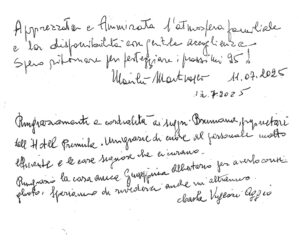 Apprezzata e Ammirata l'atmosfera familiare
e la disponibilità con gentile accoglienza
Spero ritornare per festeggiare i prossimi 95!
11.07.2025
12.7.2025
Ringraziamento e cordialità ai sigri. proprietari
dell'Hotel Primula. Un grazie di cuore al personale molto
efficiente e le care signore che ci curano.
Ringrazio la cara amica Giuseppina per averlo
Speriamo di rivederci anche in altr
Carla